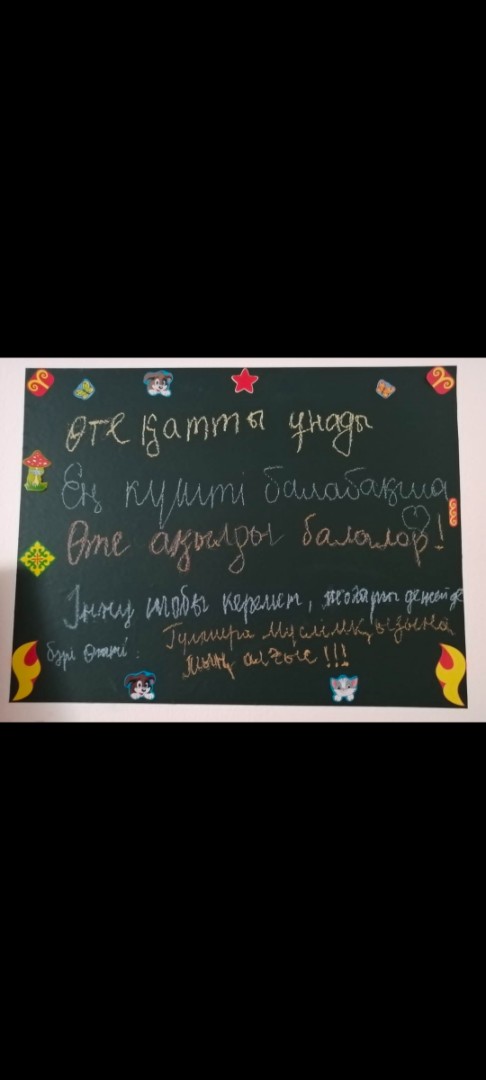 Өте қатты ұнады
Ең күшті балабақша
Өте ақылды балалар!
Інжу тобы керемет, жоғарғы деңгейде
бәрі өтті:
Гулмира Муслімқызына
мың алғыс!!!